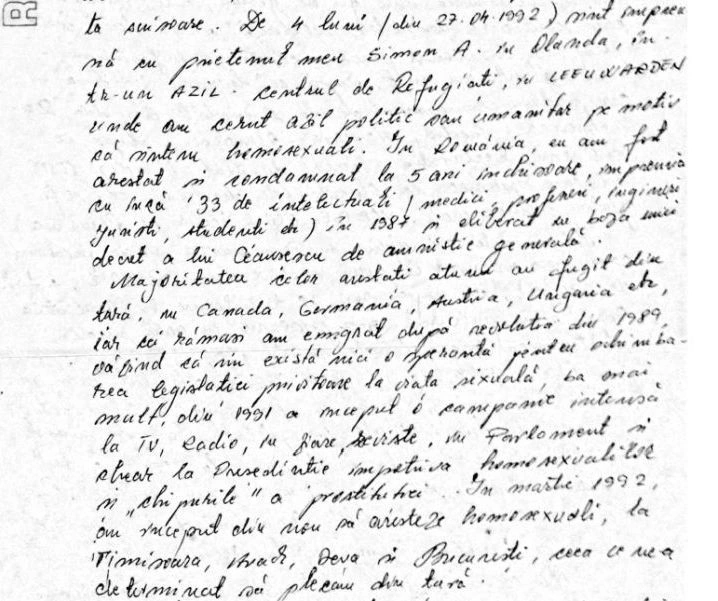 R
tă scrisoare. De 4 luni (din 27.04.1992) sînt împreu
nă cu prietenul meu Simon A. în Olanda, în
tr-un AZIL - centrul de Refugiati, în LEEUWARDEN
unde am cerut azil politic sau umanitar pe motiv
că sîntem homosexuali. În România, eu am fost
arestat și condamnat la 5 ani închisoare, împreună
cu încă 33 de intelectuali (medici, profesori, ingineri
juristi, studenti etc) în 1987 și eliberat în baza unui
decret a lui Ceausescu de amnistie generală.
Majoritatea celor arestati atunci au fugit din
tară, în Canada, Germania, Austria, Ungaria etc,
iar cei rămasi am emigrat după revolutia din 1989,
văzînd că nu există nici o speranta pentru schimba-
rea legislatiei privitoare la viata sexuală, ba mai
mult, din 1991 a început o campanie intensă
la TV, Radio, în ziare, reviste, în Parlament si
chiar la Presedintie împotriva homosexualilor
si "chipurile" a prostitutiei. În martie 1992,
au început din nou să aresteze homosexuali, la
Timisoara, Arad, Deva si Bucuresti, ceea ce ne-a
determinat să plecăm din tară.